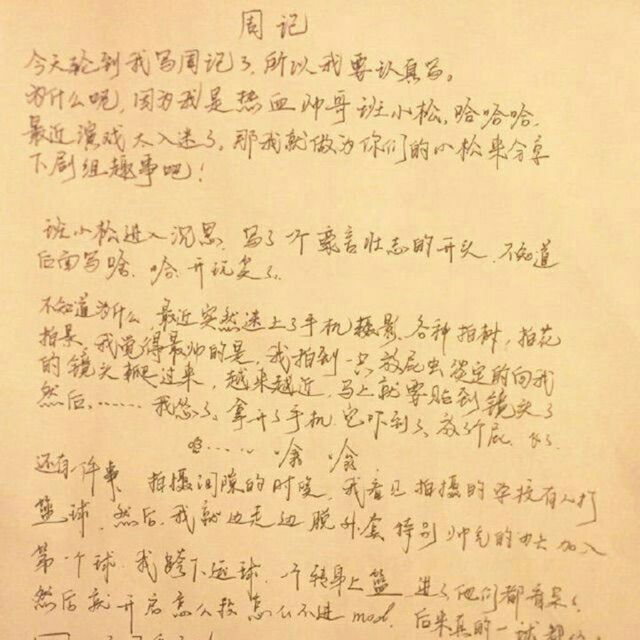 周记
今天轮到我写周记了,所以我要认真写。
为什么呢,因为我是热血帅哥班小松,哈哈哈.
最近演戏太入迷了,那我就做为你们的小松来分享
下剧组趣事吧!
班小松进入沉思,写了个豪言壮志的开头.不知道
后面写啥.哈.开玩笑了.
不知道为什么,最近突然迷上了手机摄影.各种拍树,拍花
拍景,我觉得最帅的是,我拍到一只放屁虫淡定的向我
的镜头爬过来,越来越近,马上就要贴到镜头了
然后……我怂了,拿开了手机.它吓到了,放了个屁.
哈 哈
还有一件事,拍摄间隙的时候,我看见拍摄的学校有人打
篮球,然后.我就边走边脱外套特别帅气的 加入
第一个球.我胯下运球.一个转身上篮 进了他们都看呆了.
然后就开启怎么投怎么不进mod.后来真的一球都